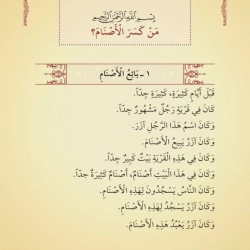 بِسْمِ اللَّهِ الرَّحْمَنِ الرَّحِيمِ
مَنْ كَسَرَ الْأَصْنَامَ؟
١ ـ بَائِعُ الْأَصْنَامِ
قَبْلَ أَيَّامٍ كَثِيرَةٍ، كَثِيرَةٍ جِدّاً.
كَانَ فِي قَرْيَةٍ رَجُلٌ مَشْهُورٌ جِدّاً.
وَكَانَ اسْمُ هَذَا الرَّجُلِ آزَرَ.
وَكَانَ آزَرُ يَبِيعُ الْأَصْنَامَ.
وَكَانَ فِي هَذِهِ الْقَرْيَةِ بَيْتٌ كَبِيرٌ جِدّاً.
وَكَانَ فِي هَذَا الْبَيْتِ أَصْنَامٌ، أَصْنَامٌ كَثِيرَةٌ جِدّاً.
وَكَانَ النَّاسُ يَسْجُدُونَ لِهَذِهِ الْأَصْنَامِ.
وَكَانَ آزَرُ يَسْجُدُ لِهَذِهِ الْأَصْنَامِ.
وَكَانَ آزَرُ يَعْبُدُ هَذِهِ الْأَصْنَامَ.